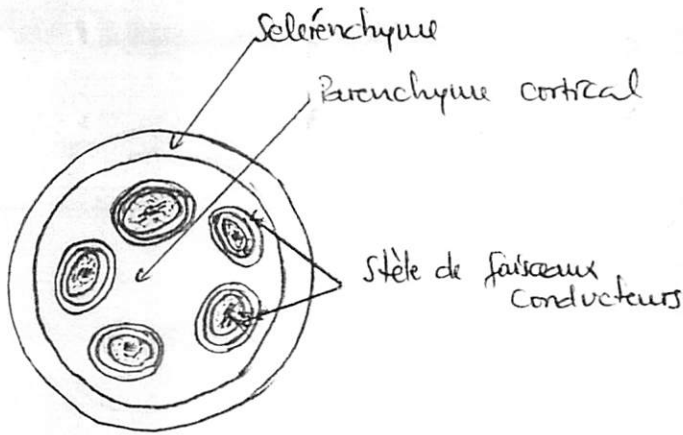 Sclérenchyme
Parenchyme cortical
Stèle de faisceaux
Conducteurs